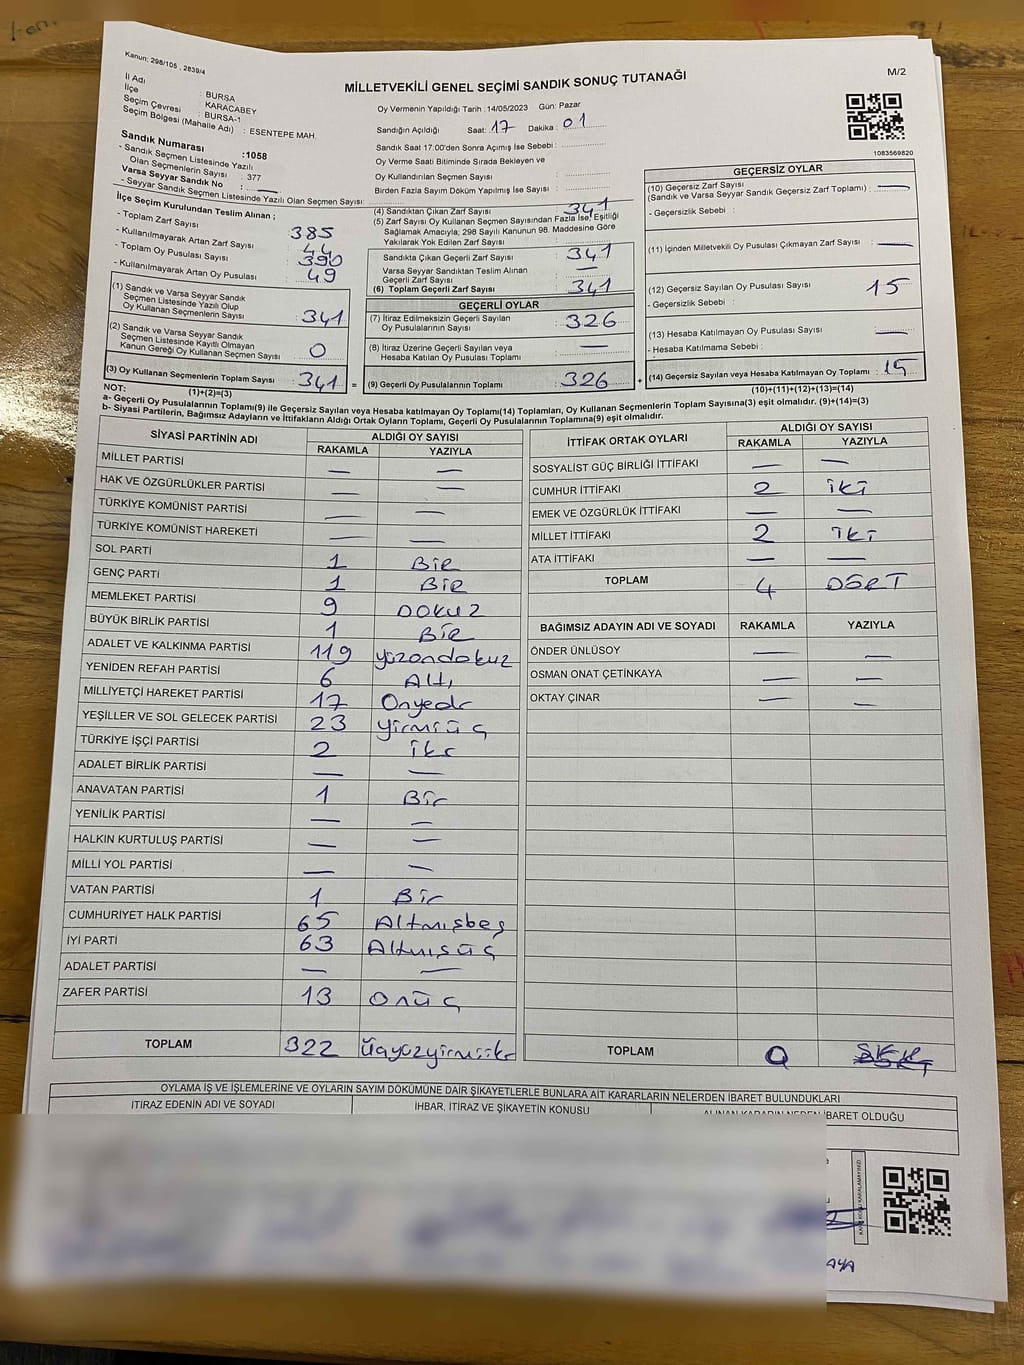 Kanun: 298/105 , 2839/4
MİLLETVEKİLİ GENEL SEÇİMİ SANDIK SONUÇ TUTANAĞI
M/2
İl Adı : BURSA
İlçe : KARACABEY
Seçim Çevresi : BURSA-1
Seçim Bölgesi (Mahalle Adı) : ESENTEPE MAH.
Sandık Numarası :1058
- Sandık Seçmen Listesinde Yazılı
Olan Seçmenlerin Sayısı : 377
Varsa Seyyar Sandık No : —
- Seyyar Sandık Seçmen Listesinde Yazılı Olan Seçmen Sayısı :
Oy Vermenin Yapıldığı Tarih : 14/05/2023 Gün: Pazar
Sandığın Açıldığı Saat: 17 Dakika : 01
Sandık Saat 17:00'den Sonra Açımış İse Sebebi :
Oy Verme Saati Bitiminde Sırada Bekleyen ve
Oy Kullandırılan Seçmen Sayısı :
Birden Fazla Sayım Döküm Yapılmış İse Sayısı :
1083569820
İlçe Seçim Kurulundan Teslim Alınan ;
- Toplam Zarf Sayısı : 385
- Kullanılmayarak Artan Zarf Sayısı : 44
- Toplam Oy Pusulası Sayısı : 390
- Kullanılmayarak Artan Oy Pusulası : 49
(1) Sandık ve Varsa Seyyar Sandık
Seçmen Listesinde Yazılı Olup
Oy Kullanan Seçmenlerin Sayısı : 341
(2) Sandık ve Varsa Seyyar Sandık
Seçmen Listesinde Kayıtlı Olmayan
Kanun Gereği Oy Kullanan Seçmen Sayısı : 0
(3) Oy Kullanan Seçmenlerin Toplam Sayısı : 341 =
(1)+(2)=(3)
(4) Sandıktan Çıkan Zarf Sayısı : 341
(5) Zarf Sayısı Oy Kullanan Seçmen Sayısından Fazla İse, Eşitliği
Sağlamak Amacıyla; 298 Sayılı Kanunun 98. Maddesine Göre
Yakılarak Yok Edilen Zarf Sayısı :
Sandıkta Çıkan Geçerli Zarf Sayısı : 341
Varsa Seyyar Sandıktan Teslim Alınan
Geçerli Zarf Sayısı : —
(6) Toplam Geçerli Zarf Sayısı : 341
GEÇERLİ OYLAR
(7) İtiraz Edilmeksizin Geçerli Sayılan
Oy Pusulalarının Sayısı : 326
(8) İtiraz Üzerine Geçerli Sayılan veya
Hesaba Katılan Oy Pusulası Toplamı : —
(9) Geçerli Oy Pusulalarının Toplamı : 326 +
GEÇERSİZ OYLAR
(10) Geçersiz Zarf Sayısı
(Sandık ve Varsa Seyyar Sandık Geçersiz Zarf Toplamı) : —
- Geçersizlik Sebebi :
(11) İçinden Milletvekili Oy Pusulası Çıkmayan Zarf Sayısı : —
(12) Geçersiz Sayılan Oy Pusulası Sayısı : 15
- Geçersizlik Sebebi :
(13) Hesaba Katılmayan Oy Pusulası Sayısı : —
- Hesaba Katılmama Sebebi :
(14) Geçersiz Sayılan veya Hesaba Katılmayan Oy Toplamı : 15
(10)+(11)+(12)+(13)=(14)
NOT:
a- Geçerli Oy Pusulalarının Toplamı(9) ile Geçersiz Sayılan veya Hesaba katılmayan Oy Toplamı(14) Toplamları, Oy Kullanan Seçmenlerin Toplam Sayısına(3) eşit olmalıdır. (9)+(14)=(3)
b- Siyasi Partilerin, Bağımsız Adayların ve İttifakların Aldığı Ortak Oyların Toplamı, Geçerli Oy Pusulalarının Toplamına(9) eşit olmalıdır.
SİYASİ PARTİNİN ADI ALDIĞI OY SAYISI
RAKAMLA YAZIYLA
MİLLET PARTİSİ — —
HAK VE ÖZGÜRLÜKLER PARTİSİ — —
TÜRKİYE KOMÜNİST PARTİSİ — —
TÜRKİYE KOMÜNİST HAREKETİ — —
SOL PARTİ 1 BİR
GENÇ PARTİ 1 BİR
MEMLEKET PARTİSİ 9 DOKUZ
BÜYÜK BİRLİK PARTİSİ 1 BİR
ADALET VE KALKINMA PARTİSİ 119 yüzondokuz
YENİDEN REFAH PARTİSİ 6 Altı
MİLLİYETÇİ HAREKET PARTİSİ 17 Onyedi
YEŞİLLER VE SOL GELECEK PARTİSİ 23 yirmiüç
TÜRKİYE İŞÇİ PARTİSİ 2 iki
ADALET BİRLİK PARTİSİ — —
ANAVATAN PARTİSİ 1 Bir
YENİLİK PARTİSİ — —
HALKIN KURTULUŞ PARTİSİ — —
MİLLİ YOL PARTİSİ — —
VATAN PARTİSİ 1 Bir
CUMHURİYET HALK PARTİSİ 65 Altmışbeş
İYİ PARTİ 63 Altmışüç
ADALET PARTİSİ — —
ZAFER PARTİSİ 13 onüç
TOPLAM 322 Üçyüzyirmiiki
İTTİFAK ORTAK OYLARI ALDIĞI OY SAYISI
RAKAMLA YAZIYLA
SOSYALİST GÜÇ BİRLİĞİ İTTİFAKI — —
CUMHUR İTTİFAKI 2 iki
EMEK VE ÖZGÜRLÜK İTTİFAKI — —
MİLLET İTTİFAKI 2 iki
ATA İTTİFAKI — —
TOPLAM 4 DÖRT
BAĞIMSIZ ADAYIN ADI VE SOYADI RAKAMLA YAZIYLA
ÖNDER ÜNLÜSOY — —
OSMAN ONAT ÇETİNKAYA — —
OKTAY ÇINAR — —
TOPLAM 0
OYLAMA İŞ VE İŞLEMLERİNE VE OYLARIN SAYIM DÖKÜMÜNE DAİR ŞİKAYETLERLE BUNLARA AİT KARARLARIN NELERDEN İBARET BULUNDUKLARI
İTİRAZ EDENİN ADI VE SOYADI İHBAR, İTİRAZ VE ŞİKAYETİN KONUSU ALINAN KARARIN NEDEN İBARET OLDUĞU